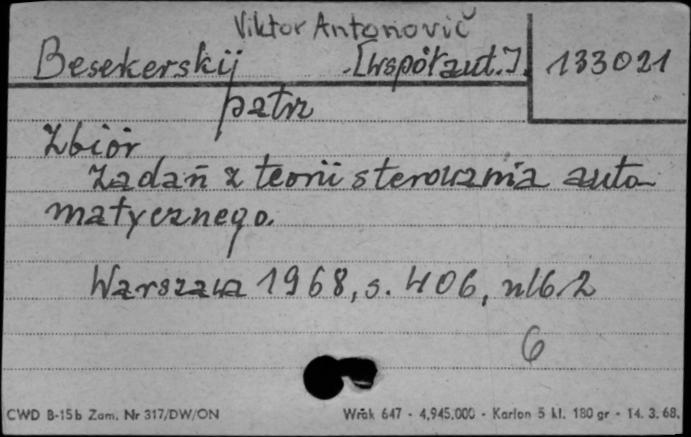 Viktor Antonovič
Besekerskij [współaut.]. 133021
patrz
Zbiór
Zadań z teorii sterowania auto-
matycznego.
Warszawa 1968, s. 406, nlb. 2
6
CWD B-15b Zam. Nr 317/DW/ON Wrak 647 - 4,945.000 - Karton 5 kl. 180 gr - 14. 3. 68.